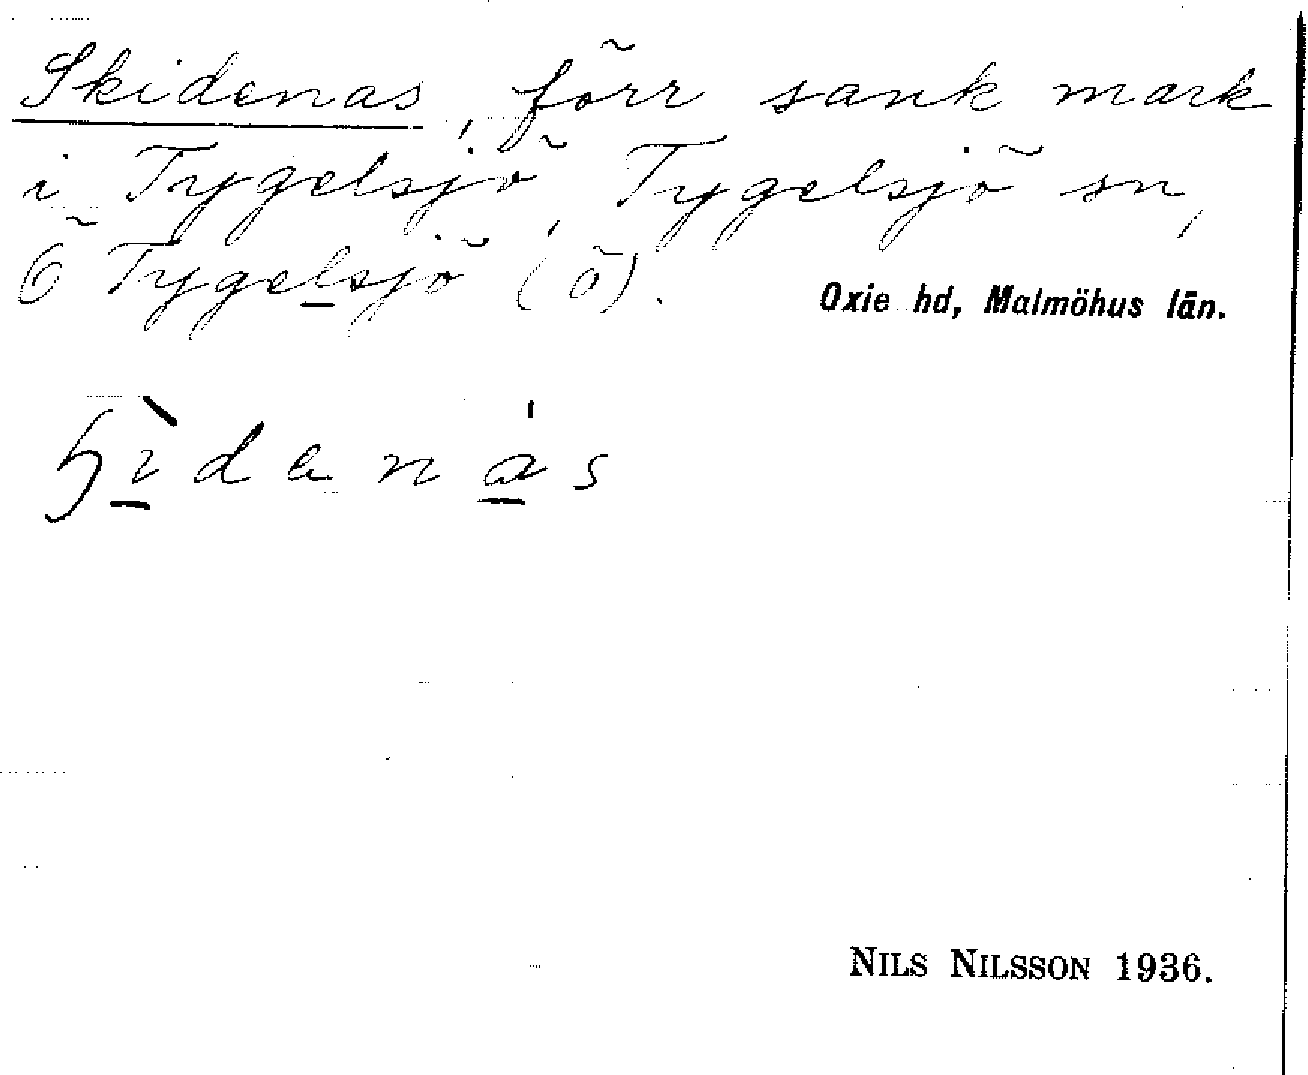 Skidenas, förr sank mark
i Tygelsjö, Tygelsjö sn,
Ö Tygelsjö (ö).
Oxie hd, Malmöhus län.
NILS NILSSON 1936.